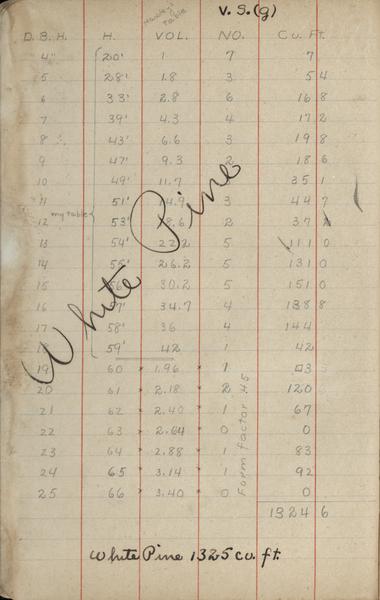 Hawley's Table
V. S. (g)
D. B. H. H. VOL. NO. Cu. Ft.
4" 20' 1 7 7
5 28' 1.8 3 5 4
6 33' 2.8 6 16 8
7 39' 4.3 4 17 2
8 43' 6.6 3 19 8
9 47' 9.3 2 18 6
10 49' 11.7 3 35 1
11 51' 14.9 3 44 7
my table
12 53' 18.6 2 37 2
13 54' 22.2 5 111 0
14 55' 26.2 5 131 0
15 56' 30.2 5 151 0
16 57' 34.7 4 138 8
17 58' 36 4 144
18 59' 42 1 42
19 60 " 1.96 " 1 53
20 61 " 2.18 " 2 120
21 62 " 2.40 " 1 67
22 63 " 2.64 " 0 0
23 64 " 2.88 " 1 83
24 65 " 3.14 " 1 92
25 66 " 3.40 " 0 0
1324 6
White Pine
Form factor .45
White Pine 1325 cu. ft.